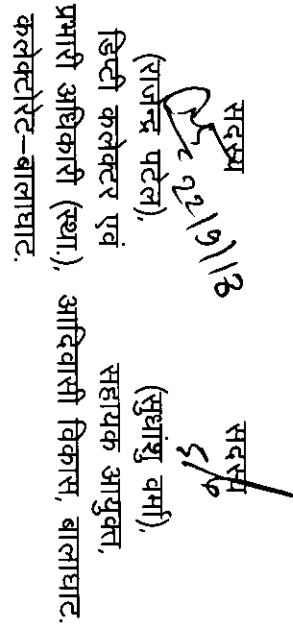 सदस्य
22/9/18
(राजेन्द्र पटेल),
डिप्टी कलेक्टर एवं
प्रभारी अधिकारी (स्था.),
कलेक्टोरेट-बालाघाट.
सदस्य
(सुधांशु वर्मा),
सहायक आयुक्त,
आदिवासी विकास, बालाघाट.